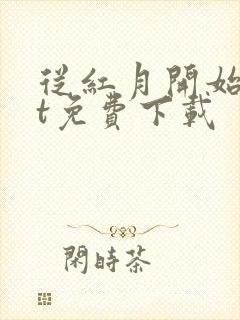 從紅月開始
t免費下載
閑時茶